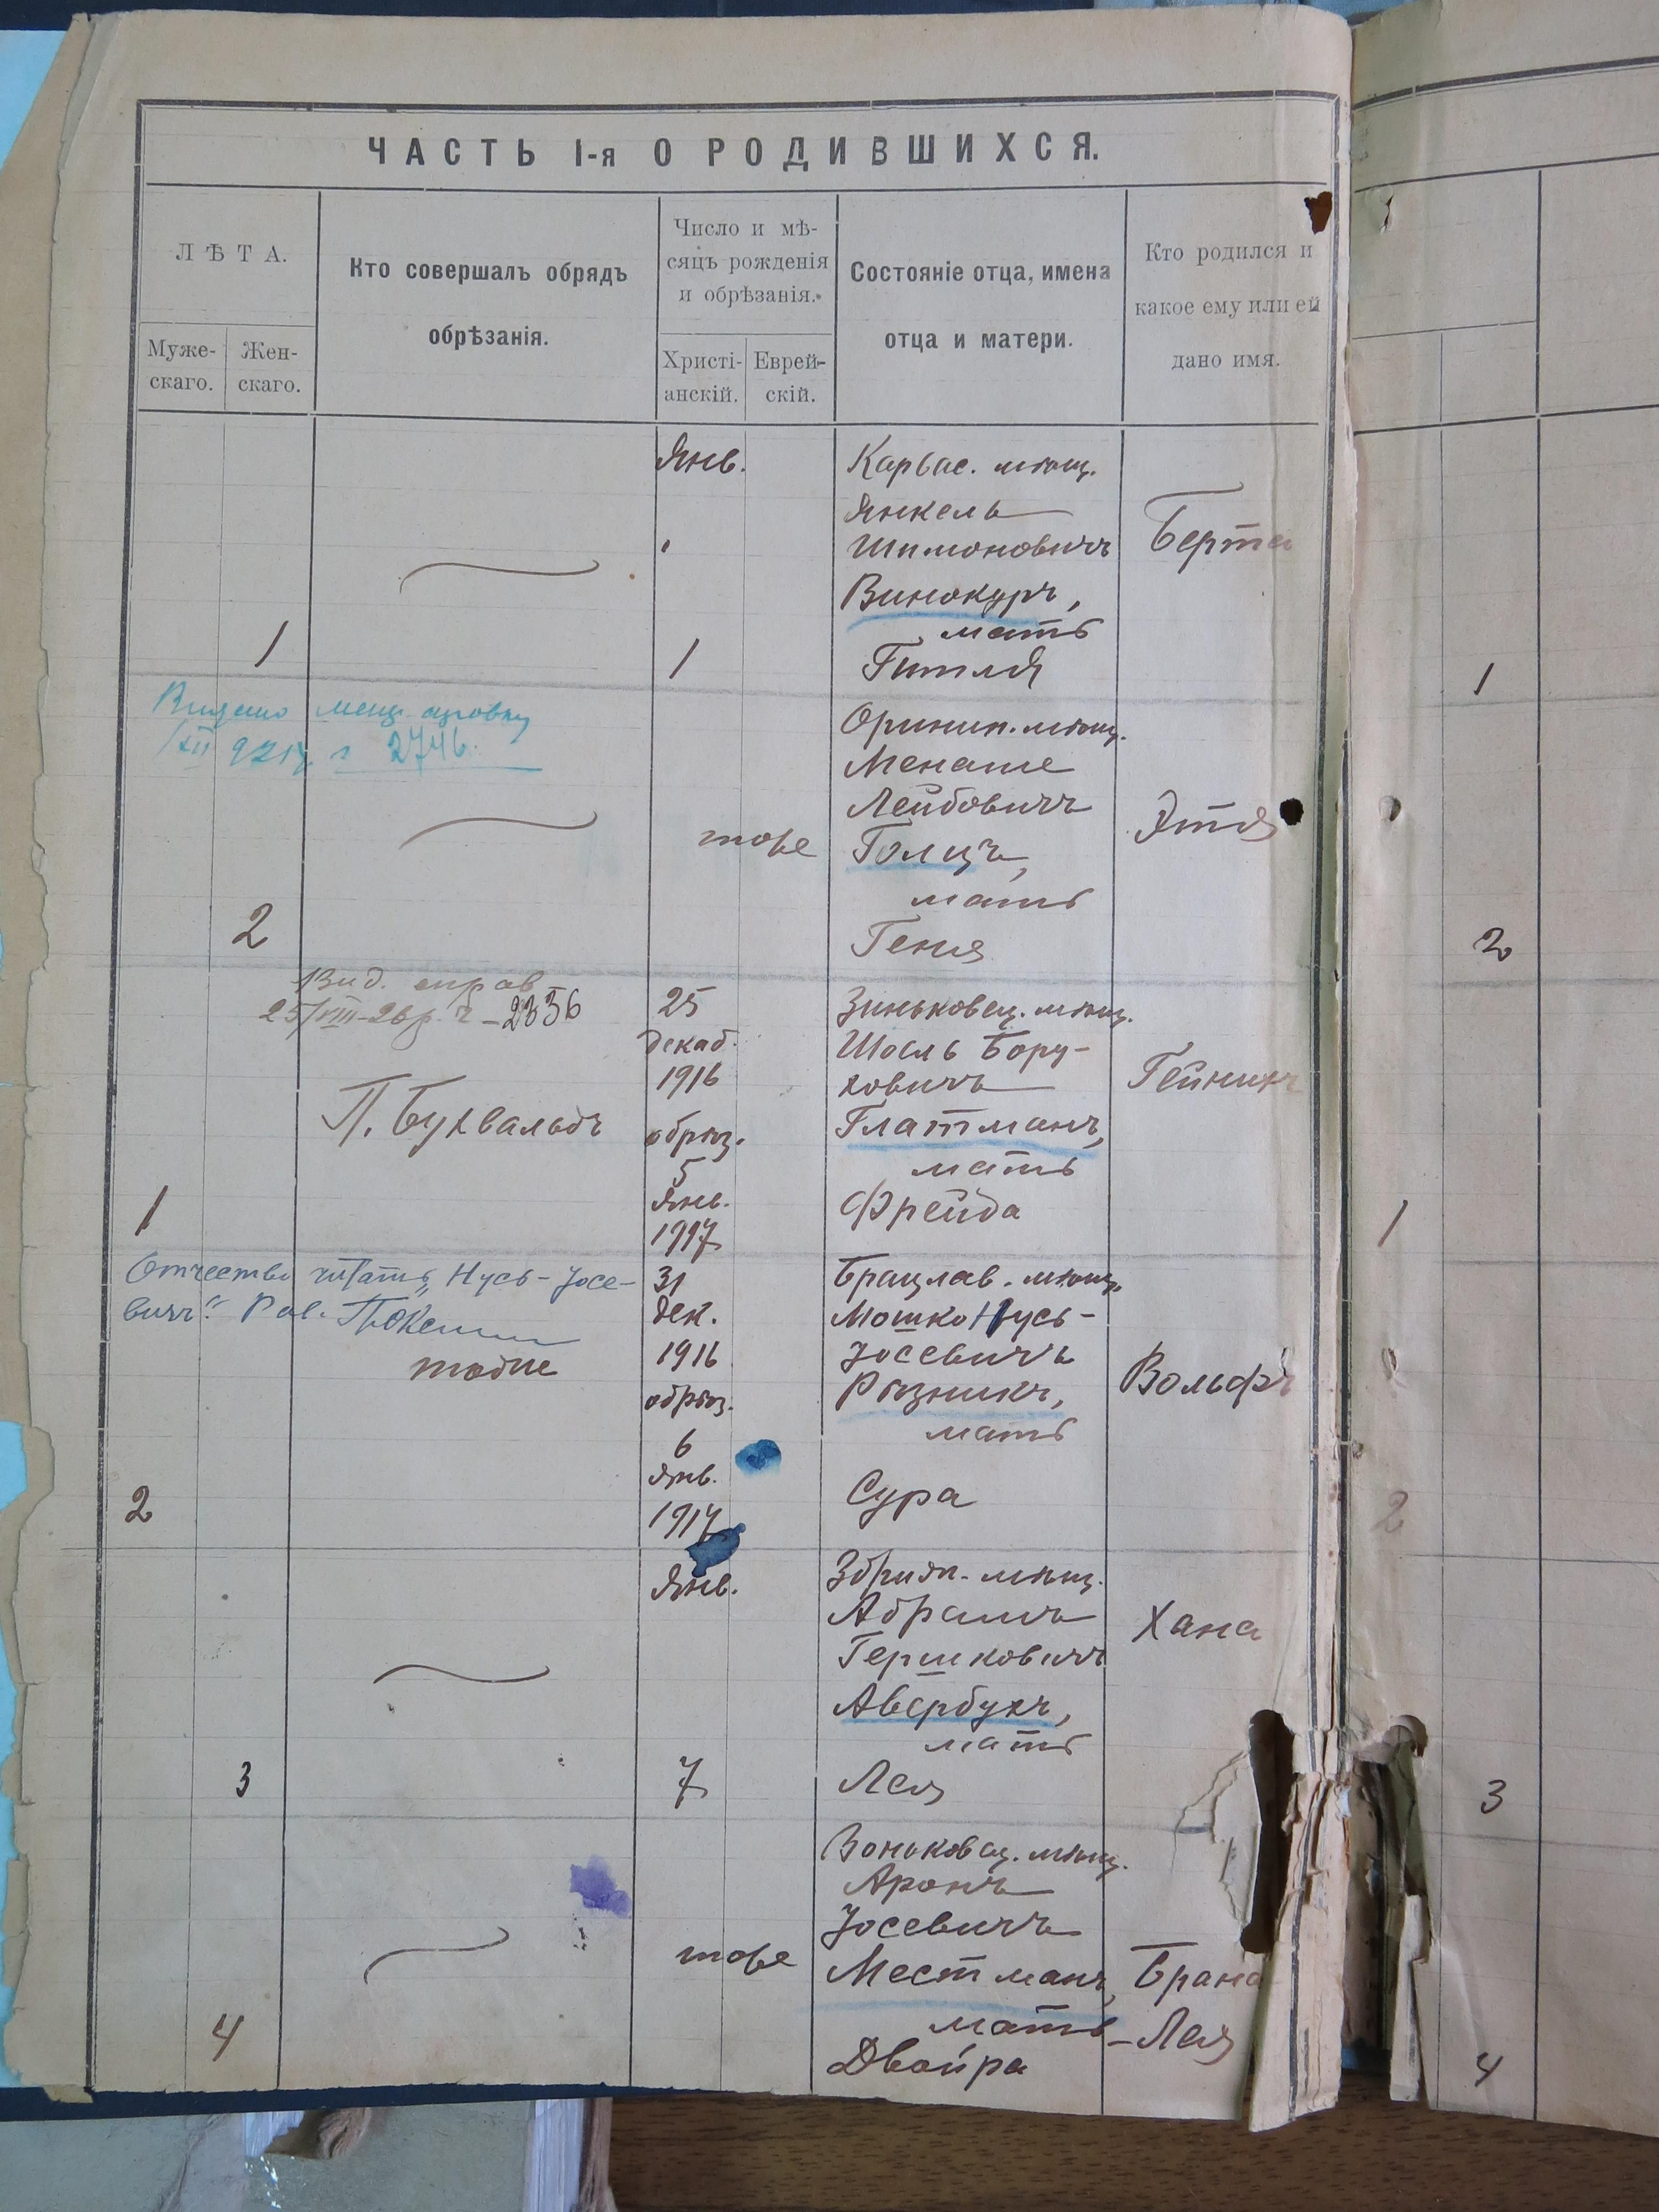 ЧАСТЬ I-я О РОДИВШИХСЯ.
ЛѢТА.
Муже-
скаго.
Жен-
скаго.
Кто совершалъ обрядъ
обрѣзанія.
Число и мѣ-
сяцъ рожденія
и обрѣзанія.
Христі-
анскій.
Еврей-
скій.
Состояніе отца, имена
отца и матери.
Кто родился и
какое ему или ей
дано имя.
Янв.
1
1
Карвас. мѣщ.
Янкель
Шимоновичъ
Винокуръ,
мать
Гитля
Берта
1
2746.
2
тоже
Оринин. мѣщ.
Менаше
Лейбовичъ
Голцъ,
мать
Геня
Этя
2
Вид. справ
25/VIII-26р. ч-2356
1
П. Бухвальдъ
25
декаб.
1916
обрѣз.
5
Янв.
1917
Зиньковец. мѣщ.
Шоель Бору-
ховичъ
Глатманъ,
мать
Фрейда
Гейнихъ
1
Отчество читать „Нусь-Йосе-
вичъ“ Рав.
2
тоже
31
дек.
1916
обрѣз.
6
Янв.
1917
Брацлав. мѣщ.
Мошко Нусь-
Йосевичъ
Рѣзникъ,
мать
Сура
Вольфъ
2
3
Янв.
7
мѣщ.
Абрамъ
Гершковичъ
Авербухъ,
мать
Лея
Хана
3
4
тоже
Воньковец. мѣщ.
Аронъ
Йосевичъ
Местманъ,
мать
Двойра
Брана
-Лея
4